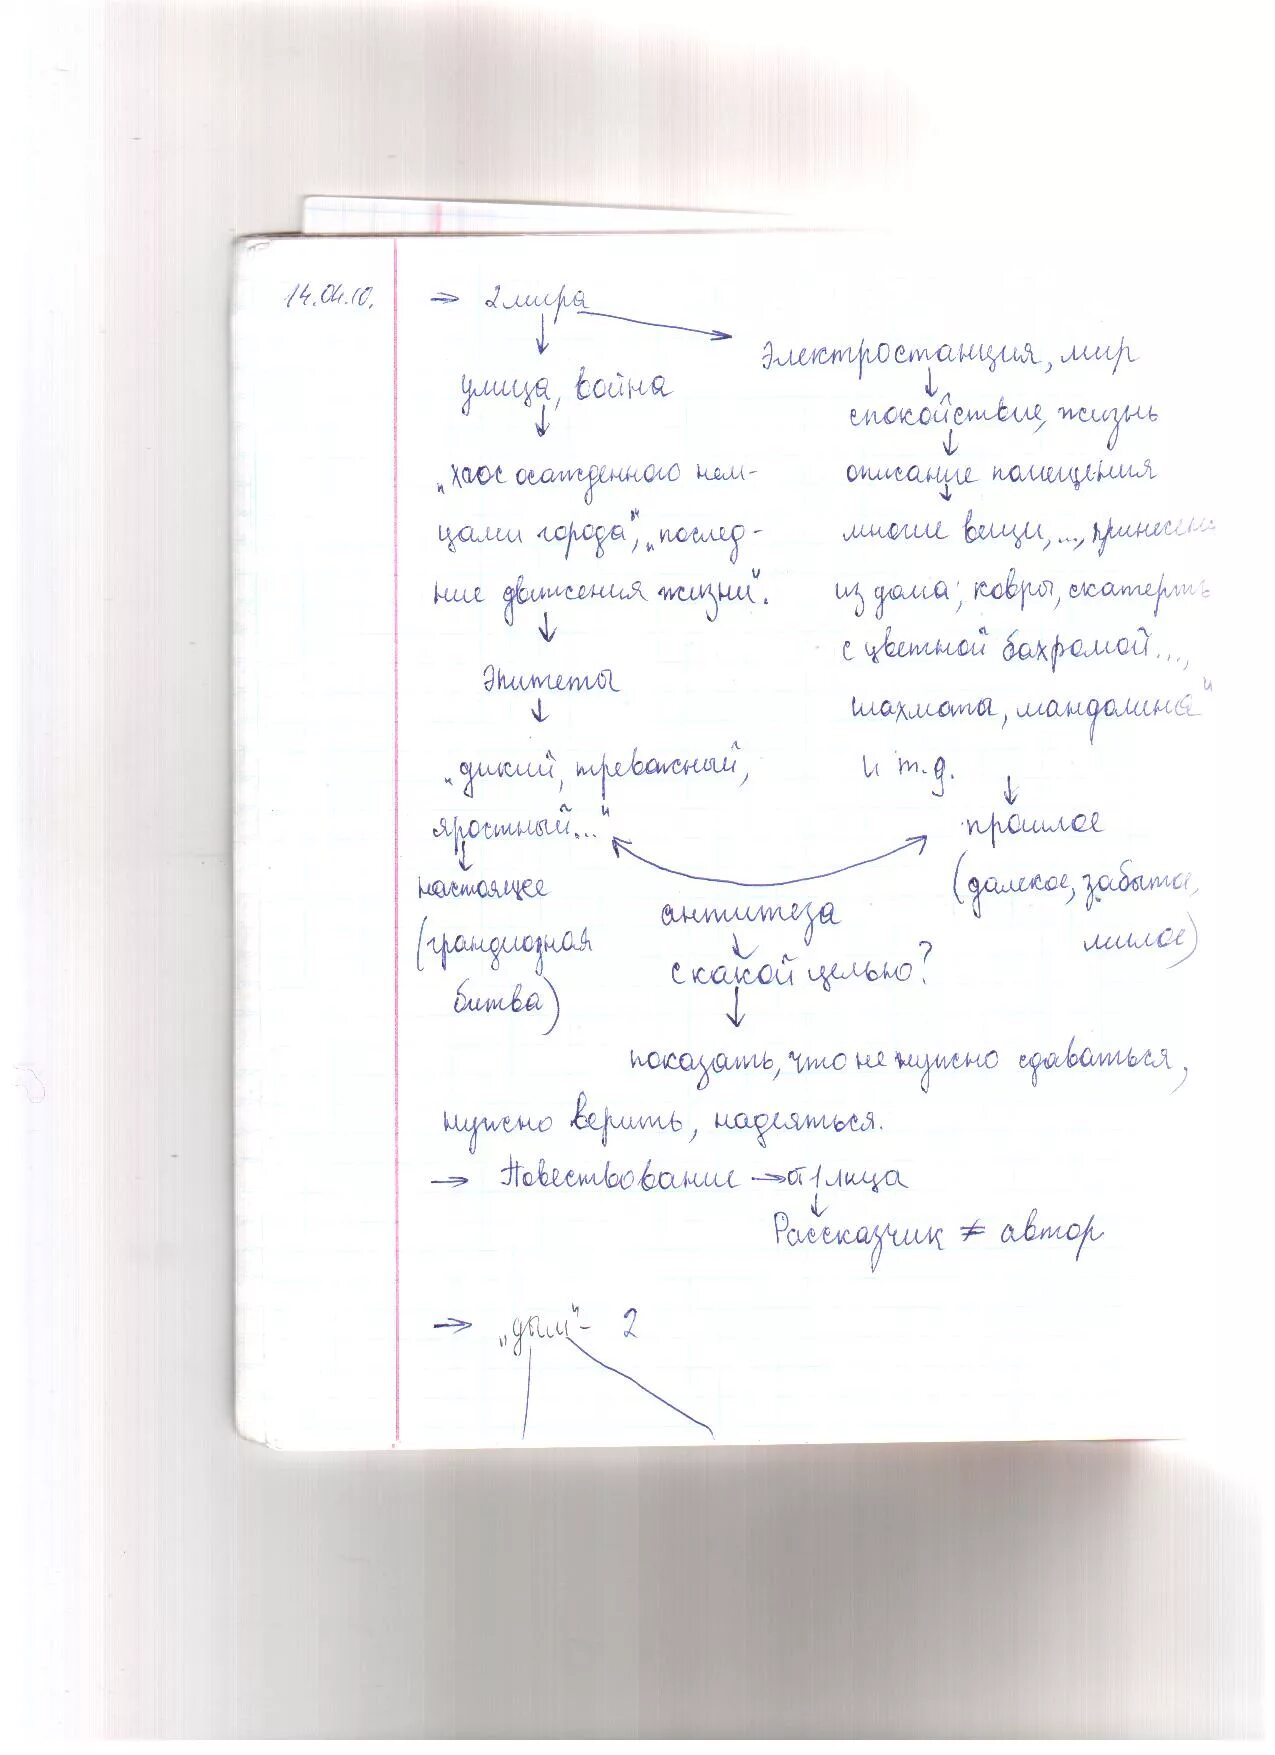 14.04.10.
→ 2 мира
Электростанция, мир
улица, война
спокойствие, жизнь
„хаос осажденного нем-
описание помещения
цами города", „послед-
многие вещи, ..., принесен
ние движения жизни".
из дома; ковры, скатерть
с цветной бахромой...,
Эпитеты
шахматы, мандолина"
„дикий, тревожный,
и т.д.
яростный..."
прошлое
настоящее
(далекое, забытое,
антитеза
(грандиозная
милое)
с какой целью?
битва)
показать, что не нужно сдаваться,
нужно верить, надеяться.
→ Повествование → от 1 лица
Рассказчик ≠ автор
→ „дым" - 2